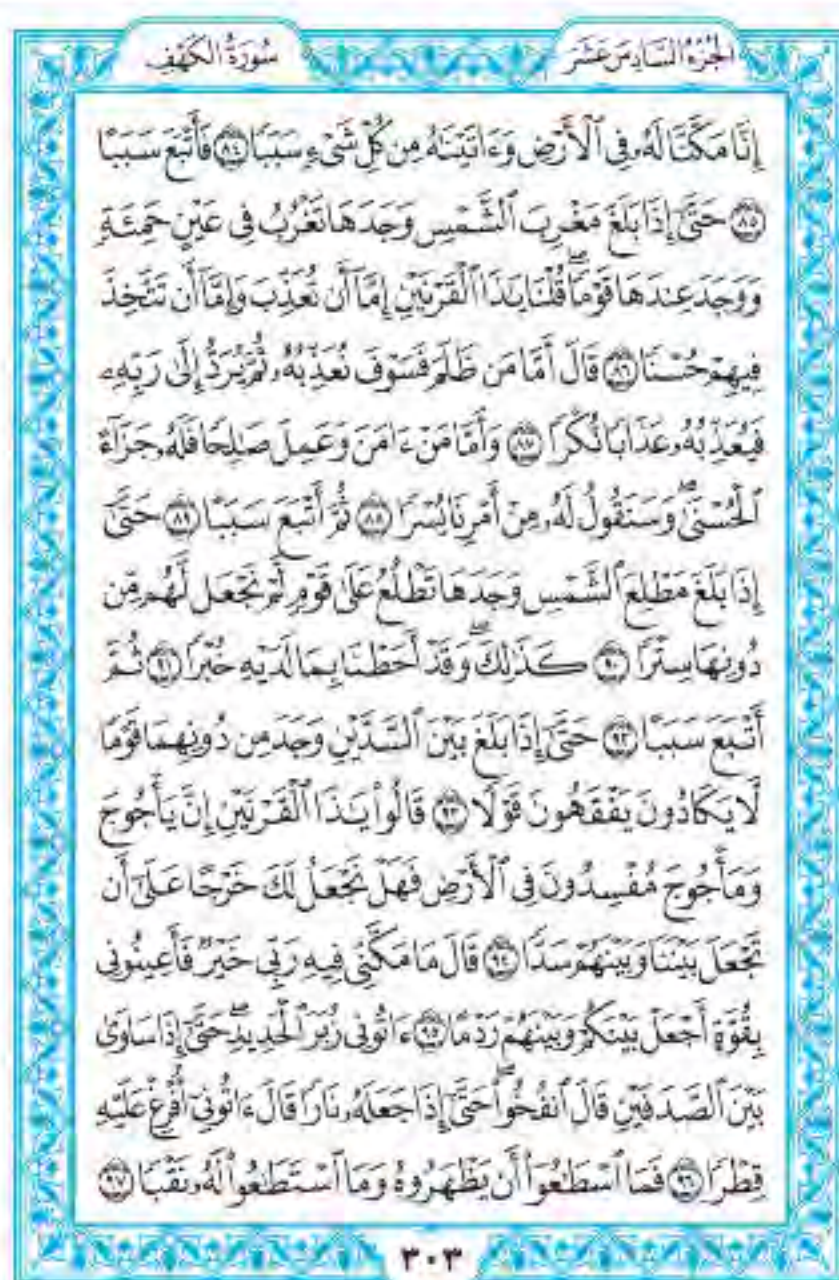 الجزء السادس عشر
سورة الكهف
إِنَّا مَكَّنَّا لَهُۥ فِى ٱلْأَرْضِ وَءَاتَيْنَٰهُ مِن كُلِّ شَىْءٍ سَبَبًا ٨٤ فَأَتْبَعَ سَبَبًا
٨٥ حَتَّىٰٓ إِذَا بَلَغَ مَغْرِبَ ٱلشَّمْسِ وَجَدَهَا تَغْرُبُ فِى عَيْنٍ حَمِئَةٍ
وَوَجَدَ عِندَهَا قَوْمًاۗ قُلْنَا يَٰذَا ٱلْقَرْنَيْنِ إِمَّآ أَن تُعَذِّبَ وَإِمَّآ أَن تَتَّخِذَ
فِيهِمْ حُسْنًا ٨٦ قَالَ أَمَّا مَن ظَلَمَ فَسَوْفَ نُعَذِّبُهُۥ ثُمَّ يُرَدُّ إِلَىٰ رَبِّهِۦ
فَيُعَذِّبُهُۥ عَذَابًا نُّكْرًا ٨٧ وَأَمَّا مَنْ ءَامَنَ وَعَمِلَ صَٰلِحًا فَلَهُۥ جَزَآءً
ٱلْحُسْنَىٰۖ وَسَنَقُولُ لَهُۥ مِنْ أَمْرِنَا يُسْرًا ٨٨ ثُمَّ أَتْبَعَ سَبَبًا ٨٩ حَتَّىٰٓ
إِذَا بَلَغَ مَطْلِعَ ٱلشَّمْسِ وَجَدَهَا تَطْلُعُ عَلَىٰ قَوْمٍ لَّمْ نَجْعَل لَّهُم مِّن
دُونِهَا سِتْرًا ٩٠ كَذَٰلِكَۖ وَقَدْ أَحَطْنَا بِمَا لَدَيْهِ خُبْرًا ٩١ ثُمَّ
أَتْبَعَ سَبَبًا ٩٢ حَتَّىٰٓ إِذَا بَلَغَ بَيْنَ ٱلسَّدَّيْنِ وَجَدَ مِن دُونِهِمَا قَوْمًا
لَّا يَكَادُونَ يَفْقَهُونَ قَوْلًا ٩٣ قَالُوا۟ يَٰذَا ٱلْقَرْنَيْنِ إِنَّ يَأْجُوجَ
وَمَأْجُوجَ مُفْسِدُونَ فِى ٱلْأَرْضِ فَهَلْ نَجْعَلُ لَكَ خَرْجًا عَلَىٰٓ أَن
تَجْعَلَ بَيْنَنَا وَبَيْنَهُمْ سَدًّا ٩٤ قَالَ مَا مَكَّنِّى فِيهِ رَبِّى خَيْرٌ فَأَعِينُونِى
بِقُوَّةٍ أَجْعَلْ بَيْنَكُمْ وَبَيْنَهُمْ رَدْمًا ٩٥ ءَاتُونِى زُبَرَ ٱلْحَدِيدِۖ حَتَّىٰٓ إِذَا سَاوَىٰ
بَيْنَ ٱلصَّدَفَيْنِ قَالَ ٱنفُخُوا۟ۖ حَتَّىٰٓ إِذَا جَعَلَهُۥ نَارًا قَالَ ءَاتُونِىٓ أُفْرِغْ عَلَيْهِ
قِطْرًا ٩٦ فَمَا ٱسْطَٰعُوٓا۟ أَن يَظْهَرُوهُ وَمَا ٱسْتَطَٰعُوا۟ لَهُۥ نَقْبًا ٩٧
٣٠٣